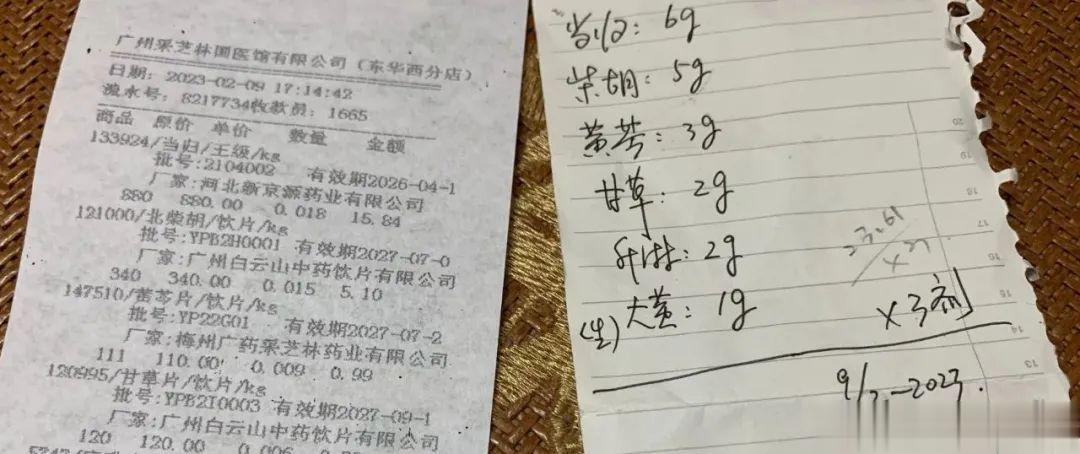 广州采芝林国医馆有限公司（东华西分店）
日期：2023-02-09 17:14:42
流水号：8217734收款员：1665
商品 原价 单价 数量 金额
133924/当归/王级/kg
批号:2104002 有效期2026-04-1
厂家:河北新京源药业有限公司
880 880.00 0.018 15.84
121000/北柴胡/饮片/kg
批号:YPB2H0001 有效期2027-07-0
厂家:广州白云山中药饮片有限公司
340 340.00 0.015 5.10
147510/黄芩片/饮片/kg
批号:YP22G01 有效期2027-07-2
厂家:梅州广药采芝林药业有限公司
111 110.00 0.009 0.99
120995/甘草片/饮片/kg
批号:YPB2I0003 有效期2027-09-1
厂家:广州白云山中药饮片有限公司
120 120.00 0.006
当归：6g
柴胡：5g
黄芩：3g
甘草：2g
升麻：2g
(生)大黄：1g
×3剂
9/2-2023.
20
19
18
17
16
15
14
13